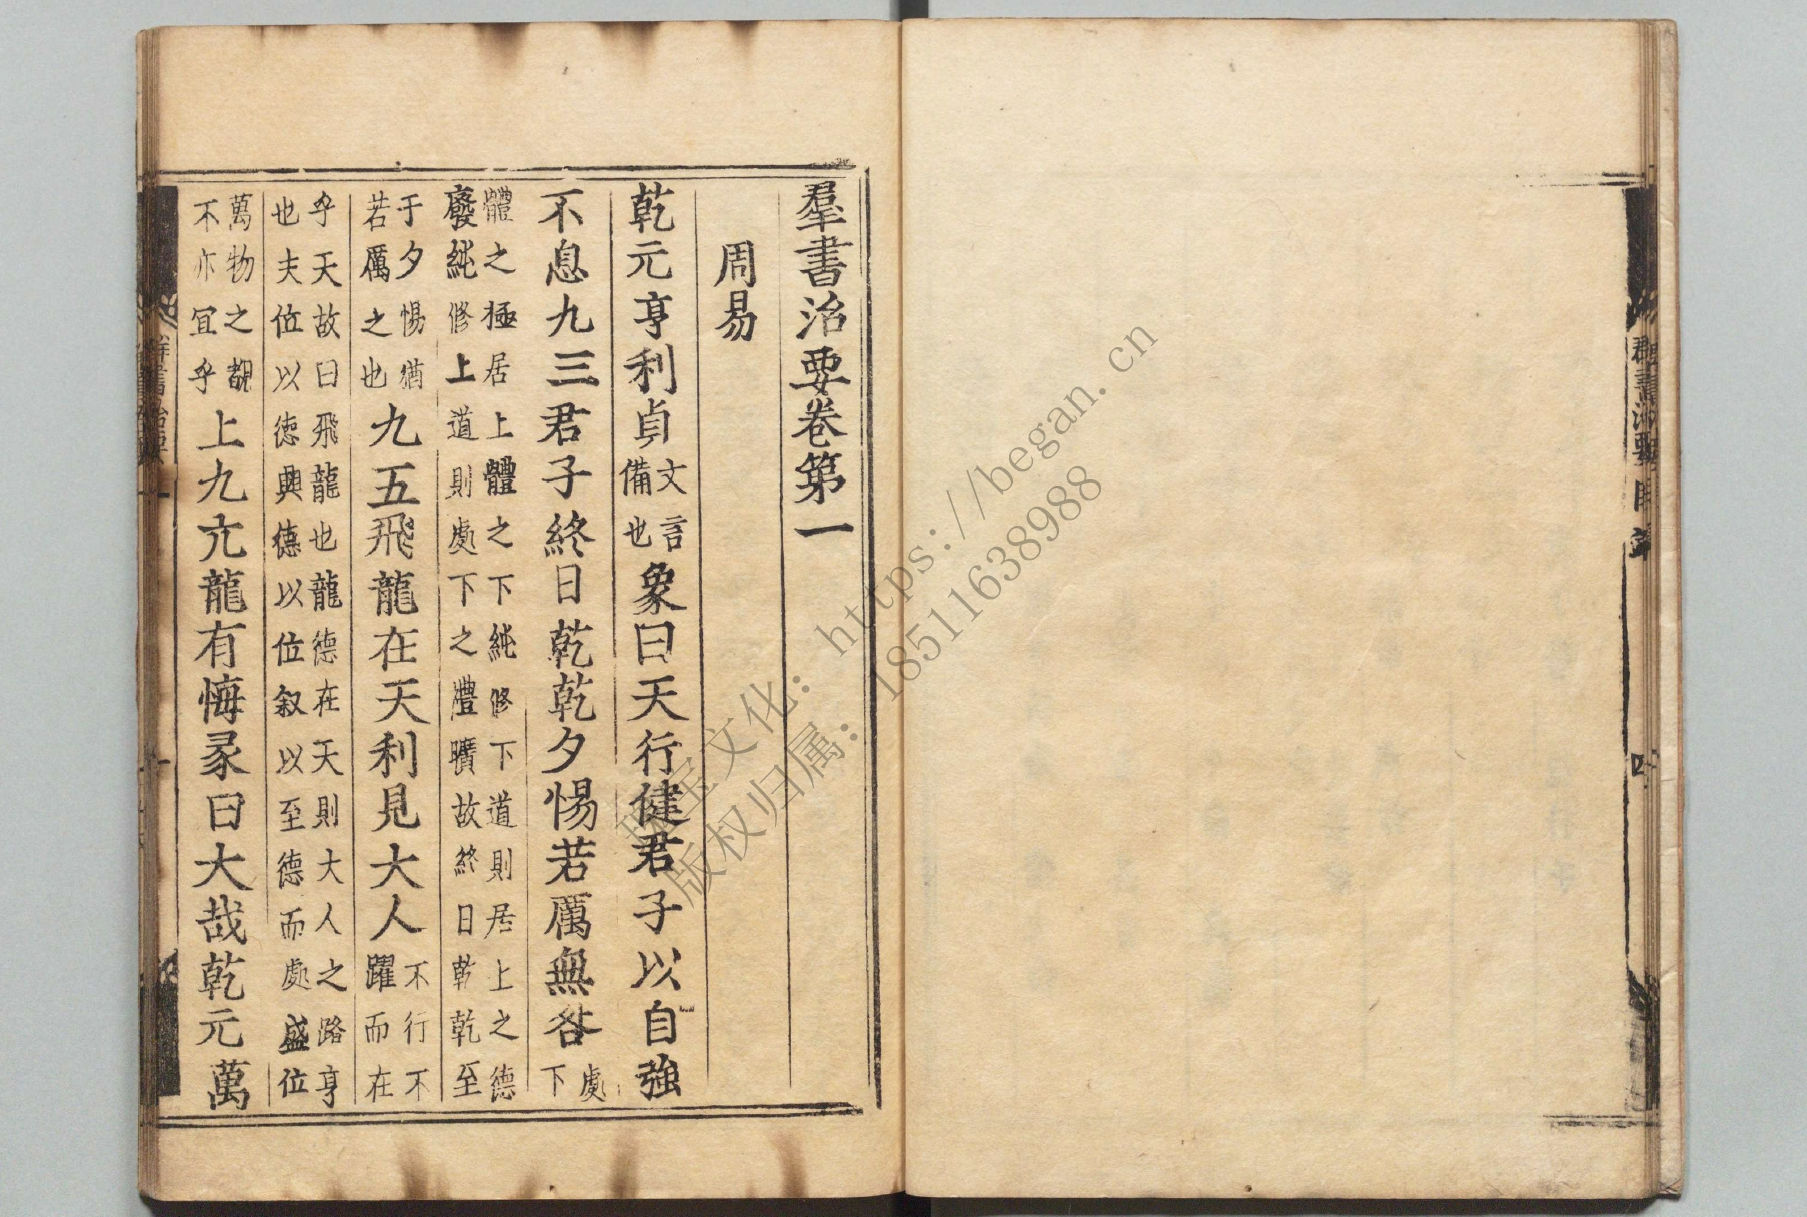 羣書治要卷第一
周易
乾元亨利貞文言備也象曰天行健君子以自強
不息九三君子終日乾乾夕惕若厲無咎處下
體之極居上體之下純修下道則居上之德
廢純修上道則處下之禮曠故終日乾乾至
于夕惕猶若厲之也九五飛龍在天利見大人不行不躍而在
乎天故曰飛龍也龍德在天則大人之路亨
也夫位以德興德以位叙以至德而處盛位
萬物之覩不亦冝乎上九亢龍有悔彖曰大哉乾元萬
文化：https://began.cn
版权归属：18511638988